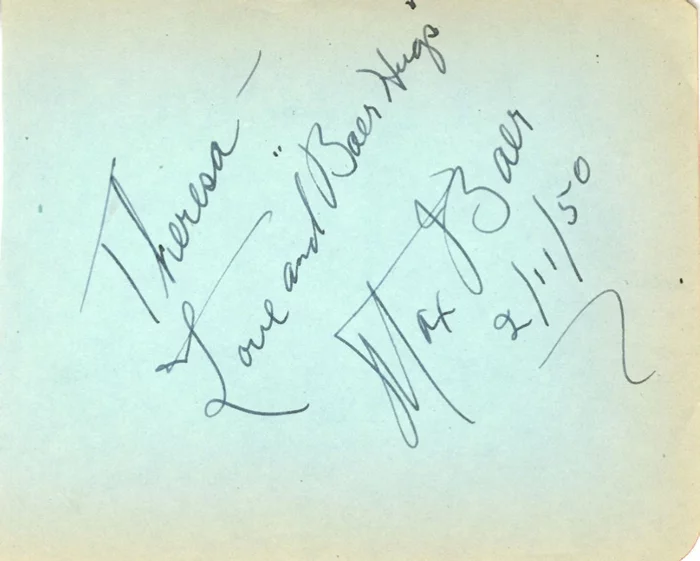 Theresa —
Love and "Baer Hugs"
Max Baer
2/11/50